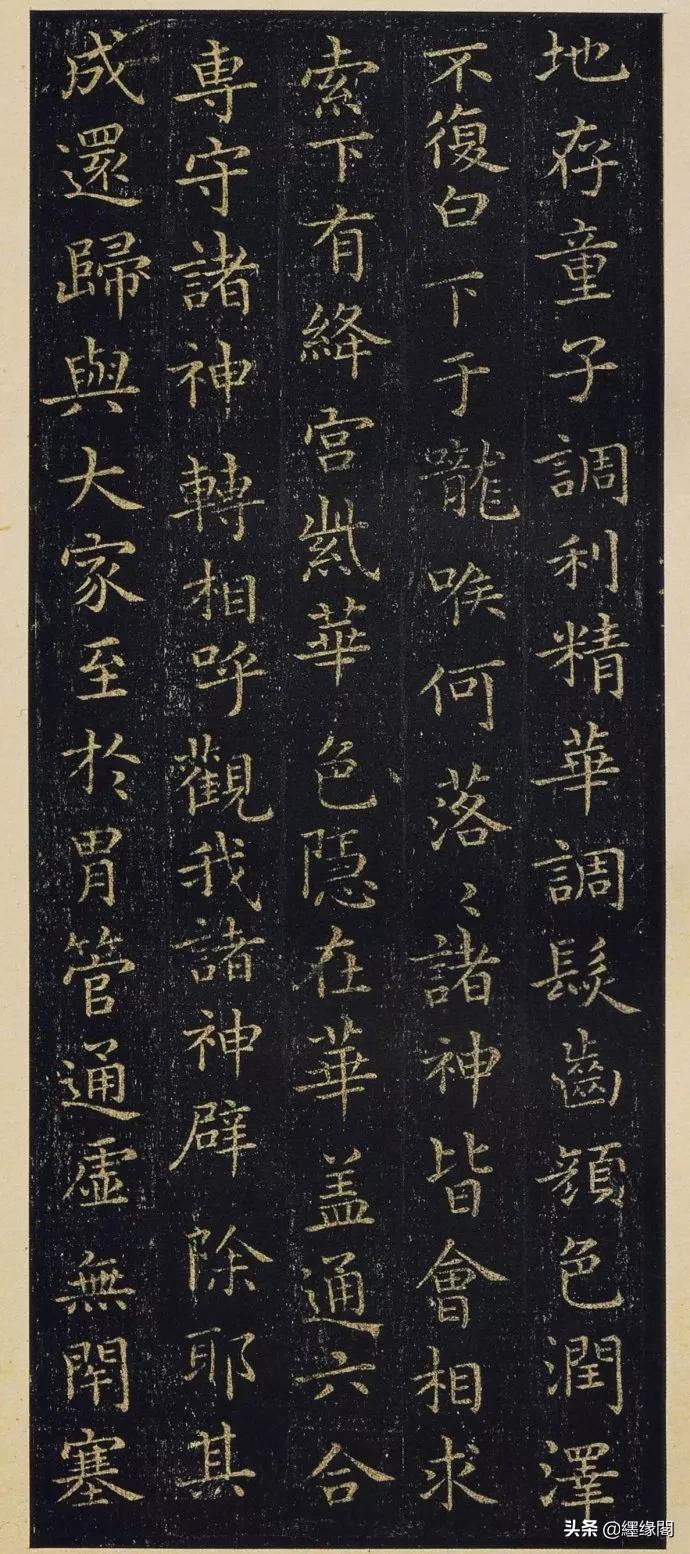 地存童子調利精華調髮齒顏色潤澤
不復白下于嚨喉何落〻諸神皆會相求
索下有絳宮紫華色隱在華盖通六合
専守諸神轉相呼觀我諸神辟除耶其
成還歸與大家至於胃管通虛無閇塞
头条 @纆缘閣